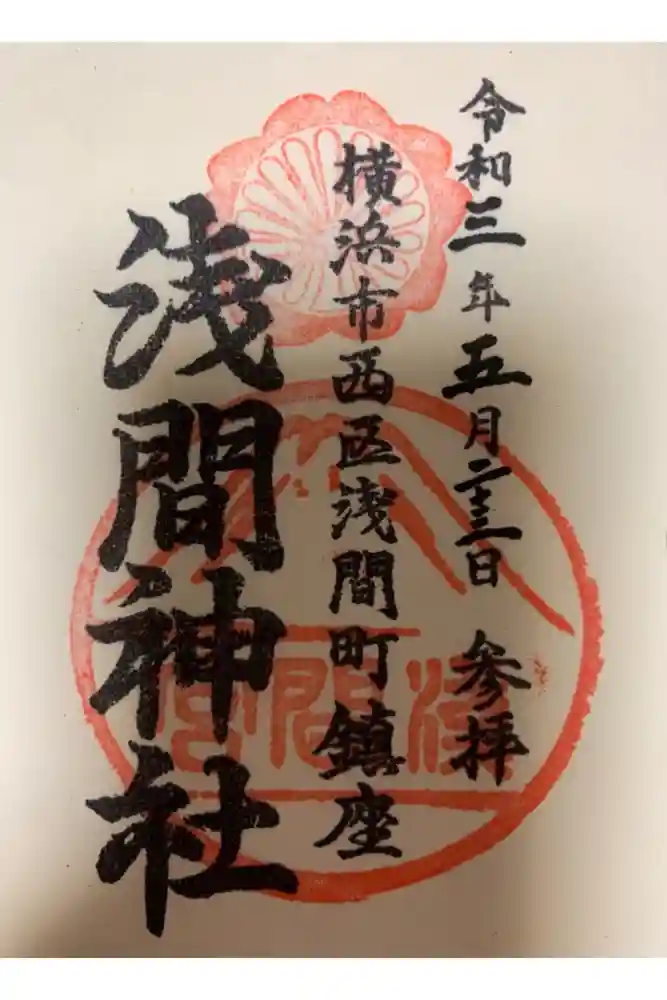 令和三年五月二十三日 参拝
横浜市西区浅間町鎮座
浅間神社
浅間宮